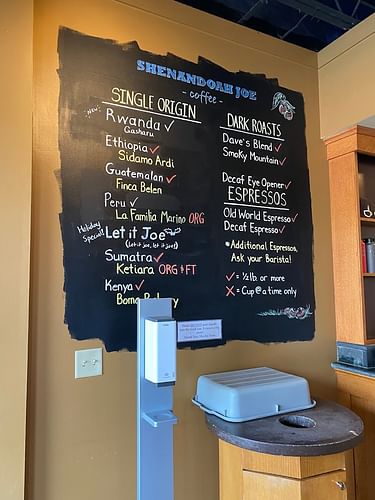 SHENANDOAH JOE
- coffee -
SINGLE ORIGIN
New!
Rwanda ✓
Gasharu
Ethiopia ✓
Sidamo Ardi
Guatemalan ✓
Finca Belen
Peru ✓
La Familia Marino ORG
Holiday Special!
Let it Joe
(let it joe, let it joe!)
Sumatra ✓
Ketiara ORG & FT
Kenya ✓
Boma
DARK ROASTS
Dave's Blend ✓
Smoky Mountain ✓
Decaf Eye Opener ✓
ESPRESSOS
Old World Espresso ✓
Decaf Espresso ✓
* Additional Espressos,
Ask your Barista!
✓ = ½ lb. or more
X = Cup @ a time only